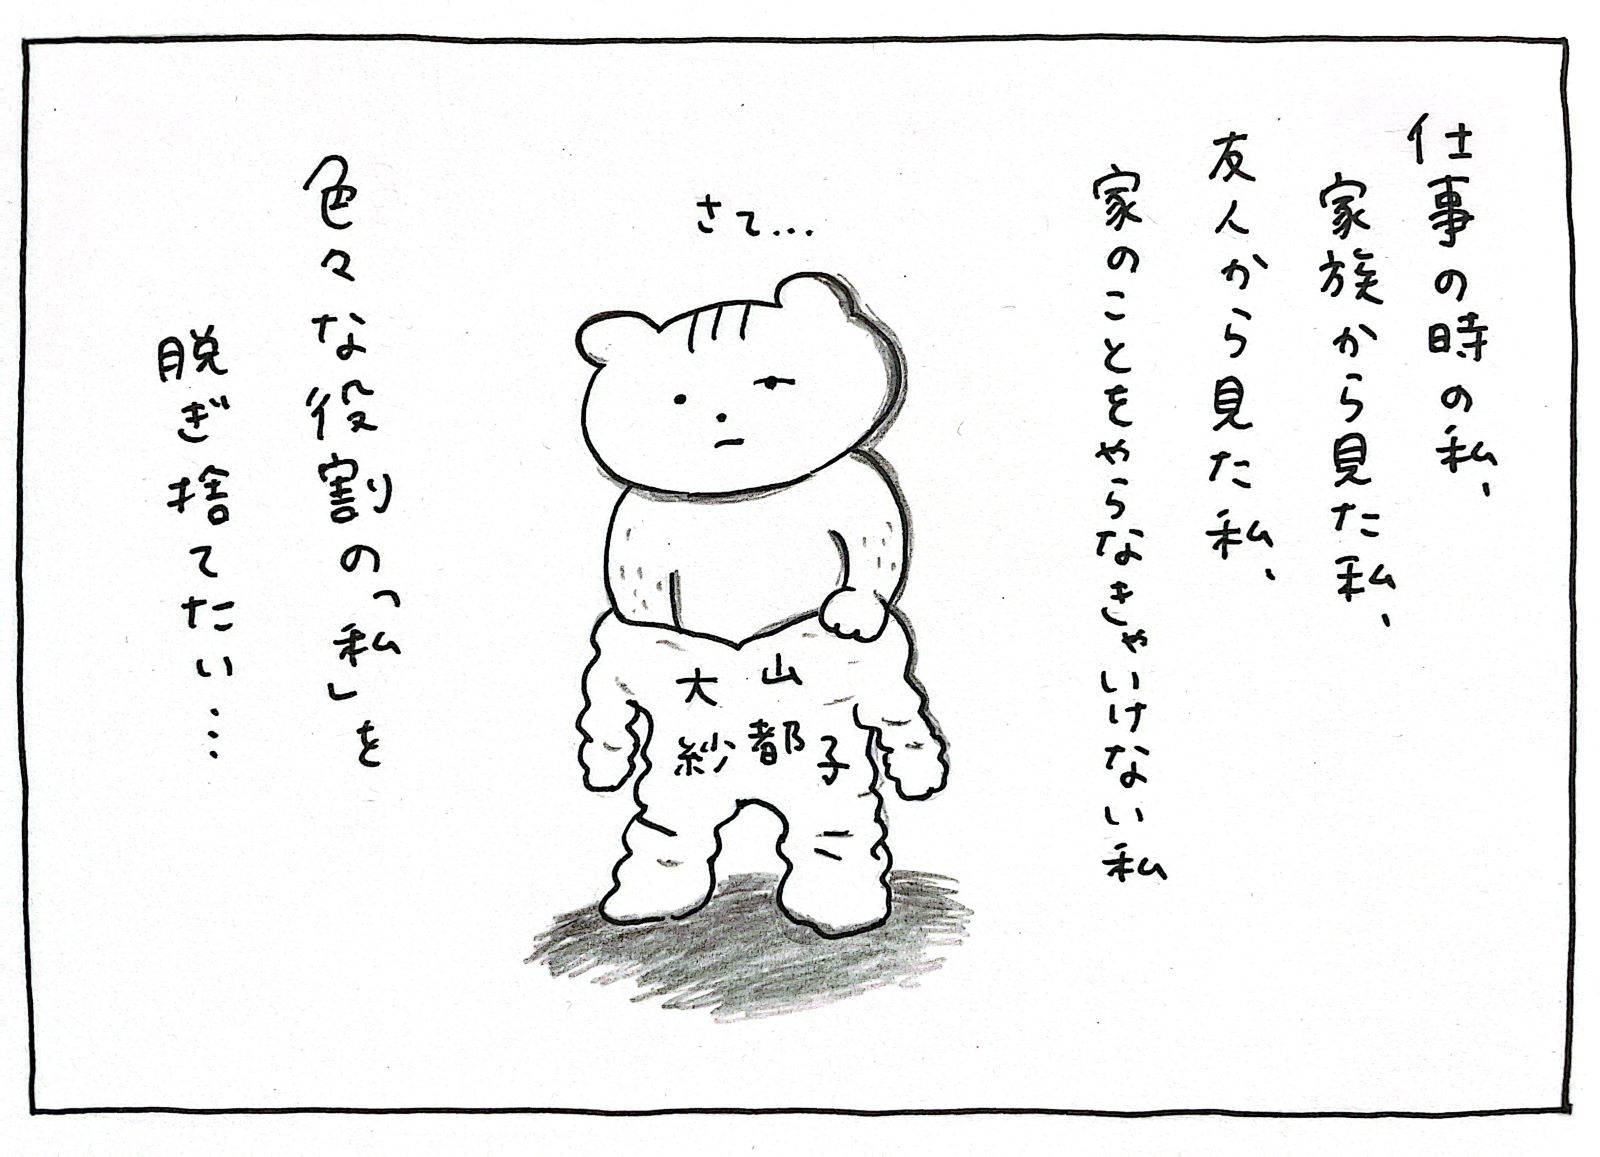 仕事の時の私、
家族から見た私、
友人から見た私、
家のことをやらなきゃいけない私
さて…
大山
紗都子
色々な役割の「私」を
脱ぎ捨てたい…